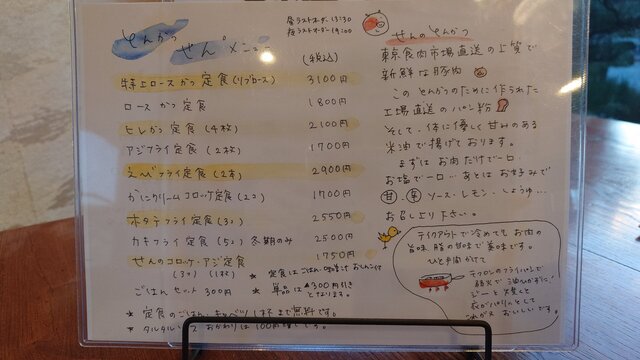 とんかつ
せん メニュー
昼ラストオーダー 13:30
夜ラストオーダー 19:00
(税込)
特上ロースかつ定食(リブロース) 3100円
ロースかつ定食 1800円
ヒレかつ定食(4枚) 2100円
アジフライ定食(2枚) 1700円
えびフライ定食(2本) 2900円
かにクリームコロッケ定食(2コ) 1700円
ホタテフライ定食(3コ) 2550円
カキフライ定食(5コ)冬期のみ 2500円
せんのコロッケ・アジ定食 1750円
(1枚)
* 定食はごはん・味噌汁
ごはんセット 300円
* 単品は¥300円引きとなります。
* 定食のごはん、キャベツ1杯まで無料です。
* タルタル おかわりは100円
せんのとんかつ
東京食肉市場直送の上質で
新鮮な豚肉
このとんかつのために作られた
工場直送のパン粉
そして、体に優しく甘みのある
米油で揚げております。
まずはお肉だけで一口
お塩で一口…あとはお好みで
甘・辛 ソース・レモン・しょうゆ…
お召し上り下さい。
テイクアウトで冷めてもお肉の
旨味、脂の甘味で美味です。
ひと手間かけて
テフロンのフライパンで
弱火で油ひかずに!
ジーッと焼くと
衣がパリッとして
おいしいです。